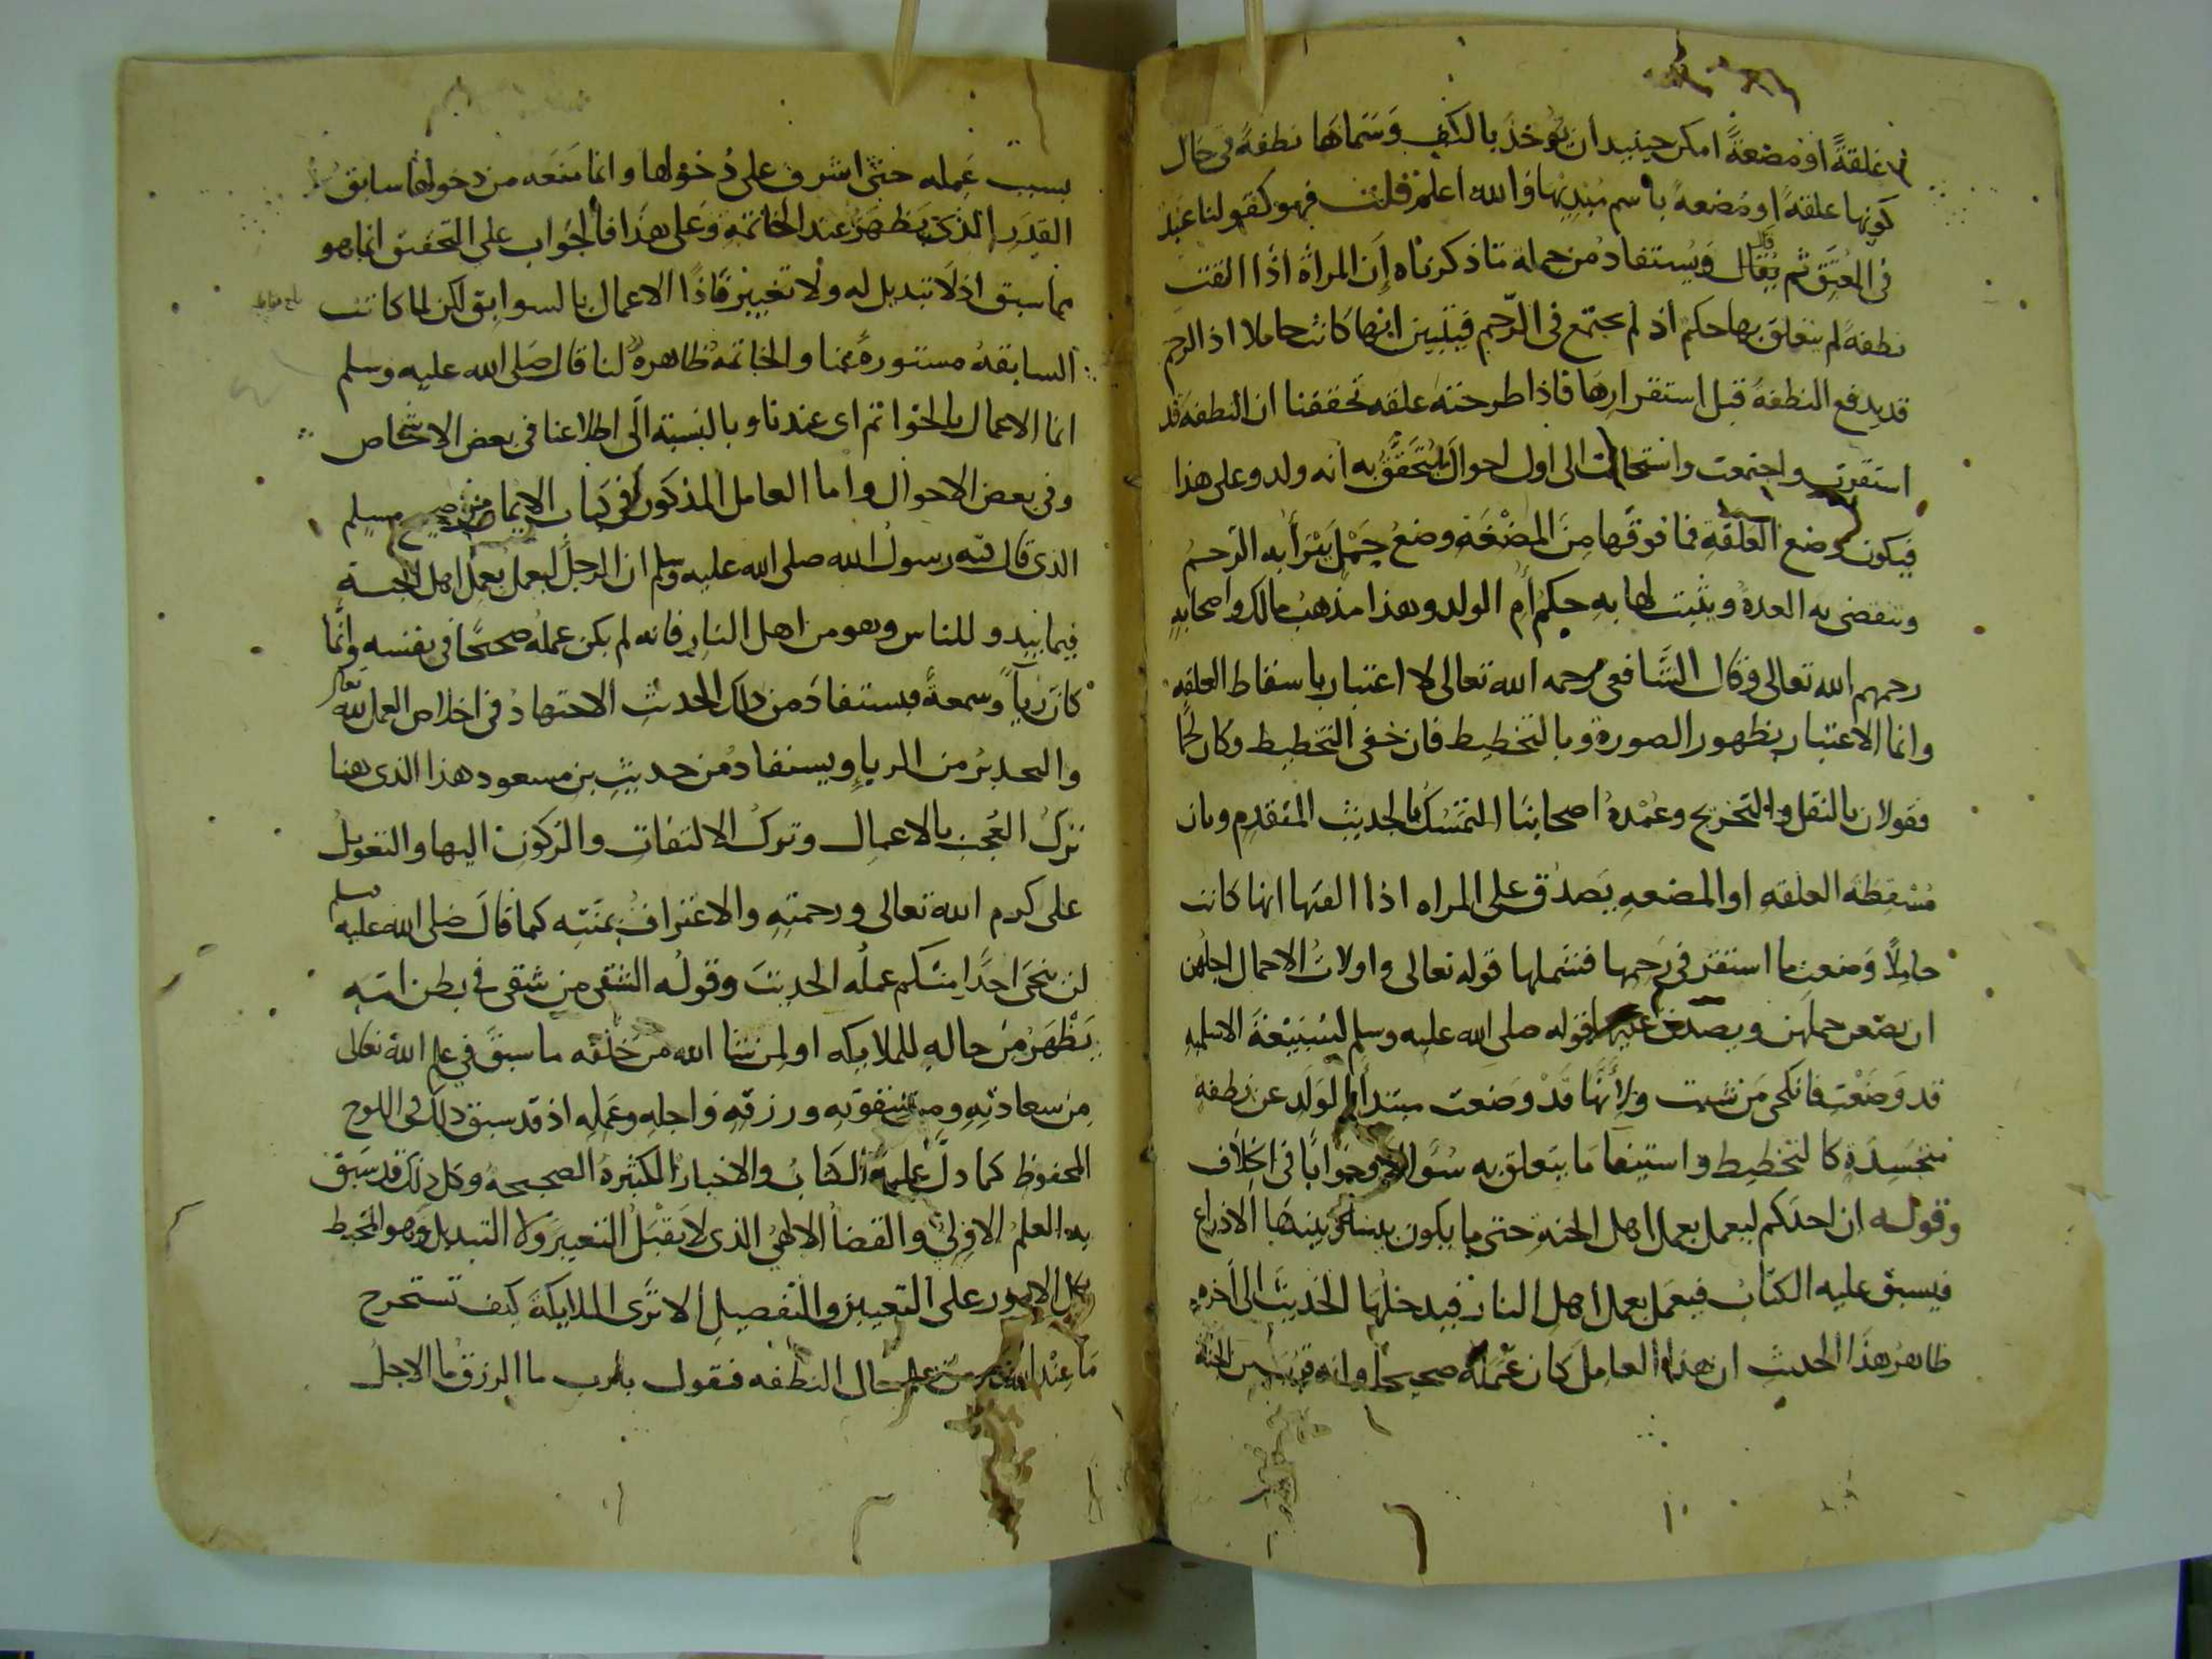 علقةً او مضغةً امكن حينيد ان يوخذ بالكف وسماها نطفةً فى حال
كونها علقةً او مضغة باسم مبديها والله اعلم قلت فهو كقولنا عبد
فى المعتق ثم يقال ويستفاد من جملة ما ذكرناه إن المراة اذا القت
نطفة لم يتعلق بها حكم اذ لم يجتمع فى الرحم فيتبين انها كانت حاملا اذ الرحم
قد يدفع النطفة قبل استقرارها فاذا طرحته علقه تحققنا ان النطفة قد
استقرت واجتمعت واستحالت الى اول احوال يتحقق به انه ولد وعلى هذا
فيكون وضع العلقة فما فوقها من المضغة وضع حمل يبرأ به الرحم
وتنقضى به العدة ويثبت لها به حكم أم الولد وهذا مذهب مالك واصحابه
رحمهم الله تعالى وقال الشافعى رحمه الله تعالى لا اعتبار باسقاط العلقه
وانما الاعتبار بظهور الصورة وبالتخطيط فان خفى التخطيط وكان لحمًا
فقولان بالنقل والتخريج وعمدة اصحابنا التمسك بالحديث المتقدم وبان
مسقطة العلقه او المضغه يصدق على المراه اذا القتها انها كانت
حاملًا وضعت ما استقر فى رحمها فشملها قوله تعالى واولات الاحمال اجلهن
ان يضعن حملهن ويصدق عليها قوله صلى الله عليه وسلم لسبيعة الاسلميه
قد وضعت فانكحى من شيت ولأنها قد وضعت مبتدأ الولد عن نطفه
متجسدة كالتخطيط واستيفا ما يتعلق به سؤالا وجوابا فى الخلاف
وقوله ان احدكم ليعمل بعمل اهل الجنة حتى ما يكون بينه وبينها الا ذراع
فيسبق عليه الكتاب فيعمل بعمل اهل النار فيدخلها الحديث الى آخره
ظاهر هذا الحديث ان هذا العامل كان عمله صحيحا وانه قرب من الجنة
بسبب عمله حتى اشرف على دخولها وانما منعه من دخولها سابق
القدر الذى يظهر عند الخاتمة وعلى هذا فالجواب على التحقيق انما هو
بما سبق اذ لا تبديل له ولا تغيير فاذًا الاعمال بالسوابق لكن لما كانت
السابقة مستورة عنا والخاتمة ظاهرة لنا قال صلى الله عليه وسلم
انما الاعمال بالخواتم اى عندنا وبالنسبة الى اطلاعنا فى بعض الاشخاص
وفى بعض الاحوال واما العامل المذكور فى كتاب الايمان من صحيح مسلم
الذى قال فيه رسول الله صلى الله عليه وسلم ان الرجل ليعمل بعمل اهل الجنة
فيما يبدو للناس وهو من اهل النار فانه لم يكن عمله صحيحًا فى نفسه وانما
كان رياً وسمعةً فيستفاد من ذلك الحديث الاجتهاد فى اخلاص العمل لله تعالى
والتحذير من الرياء ويستفاد من حديث بن مسعود هذا الذى هنا
ترك العجب بالاعمال وترك الالتفات والركون اليها والتعويل
على كرم الله تعالى ورحمته والاعتراف بمنته كما قال صلى الله عليه وسلم
لن ينجى احدًا منكم عمله الحديث وقوله الشقى من شقى فى بطن امه
يظهر من حاله للملايكه او لمن شا الله من خلقه ما سبق فى علم الله تعالى
من سعادته ومن شقوته ورزقه واجله وعمله اذ قد سبق ذلك فى اللوح
المحفوظ كما دل عليه الكتاب والاخبار الكثيرة الصحيحة وكل ذلك قد سبق
به العلم الازلى والقضا الالهى الذى لا يقبل التغيير ولا التبديل وهو المحيط
بكل الامور على التعيين والتفصيل الا ترى الملايكة كيف تستخرج
ما عند الله من علم حال النطفه فتقول يا رب ما الرزق ما الاجل